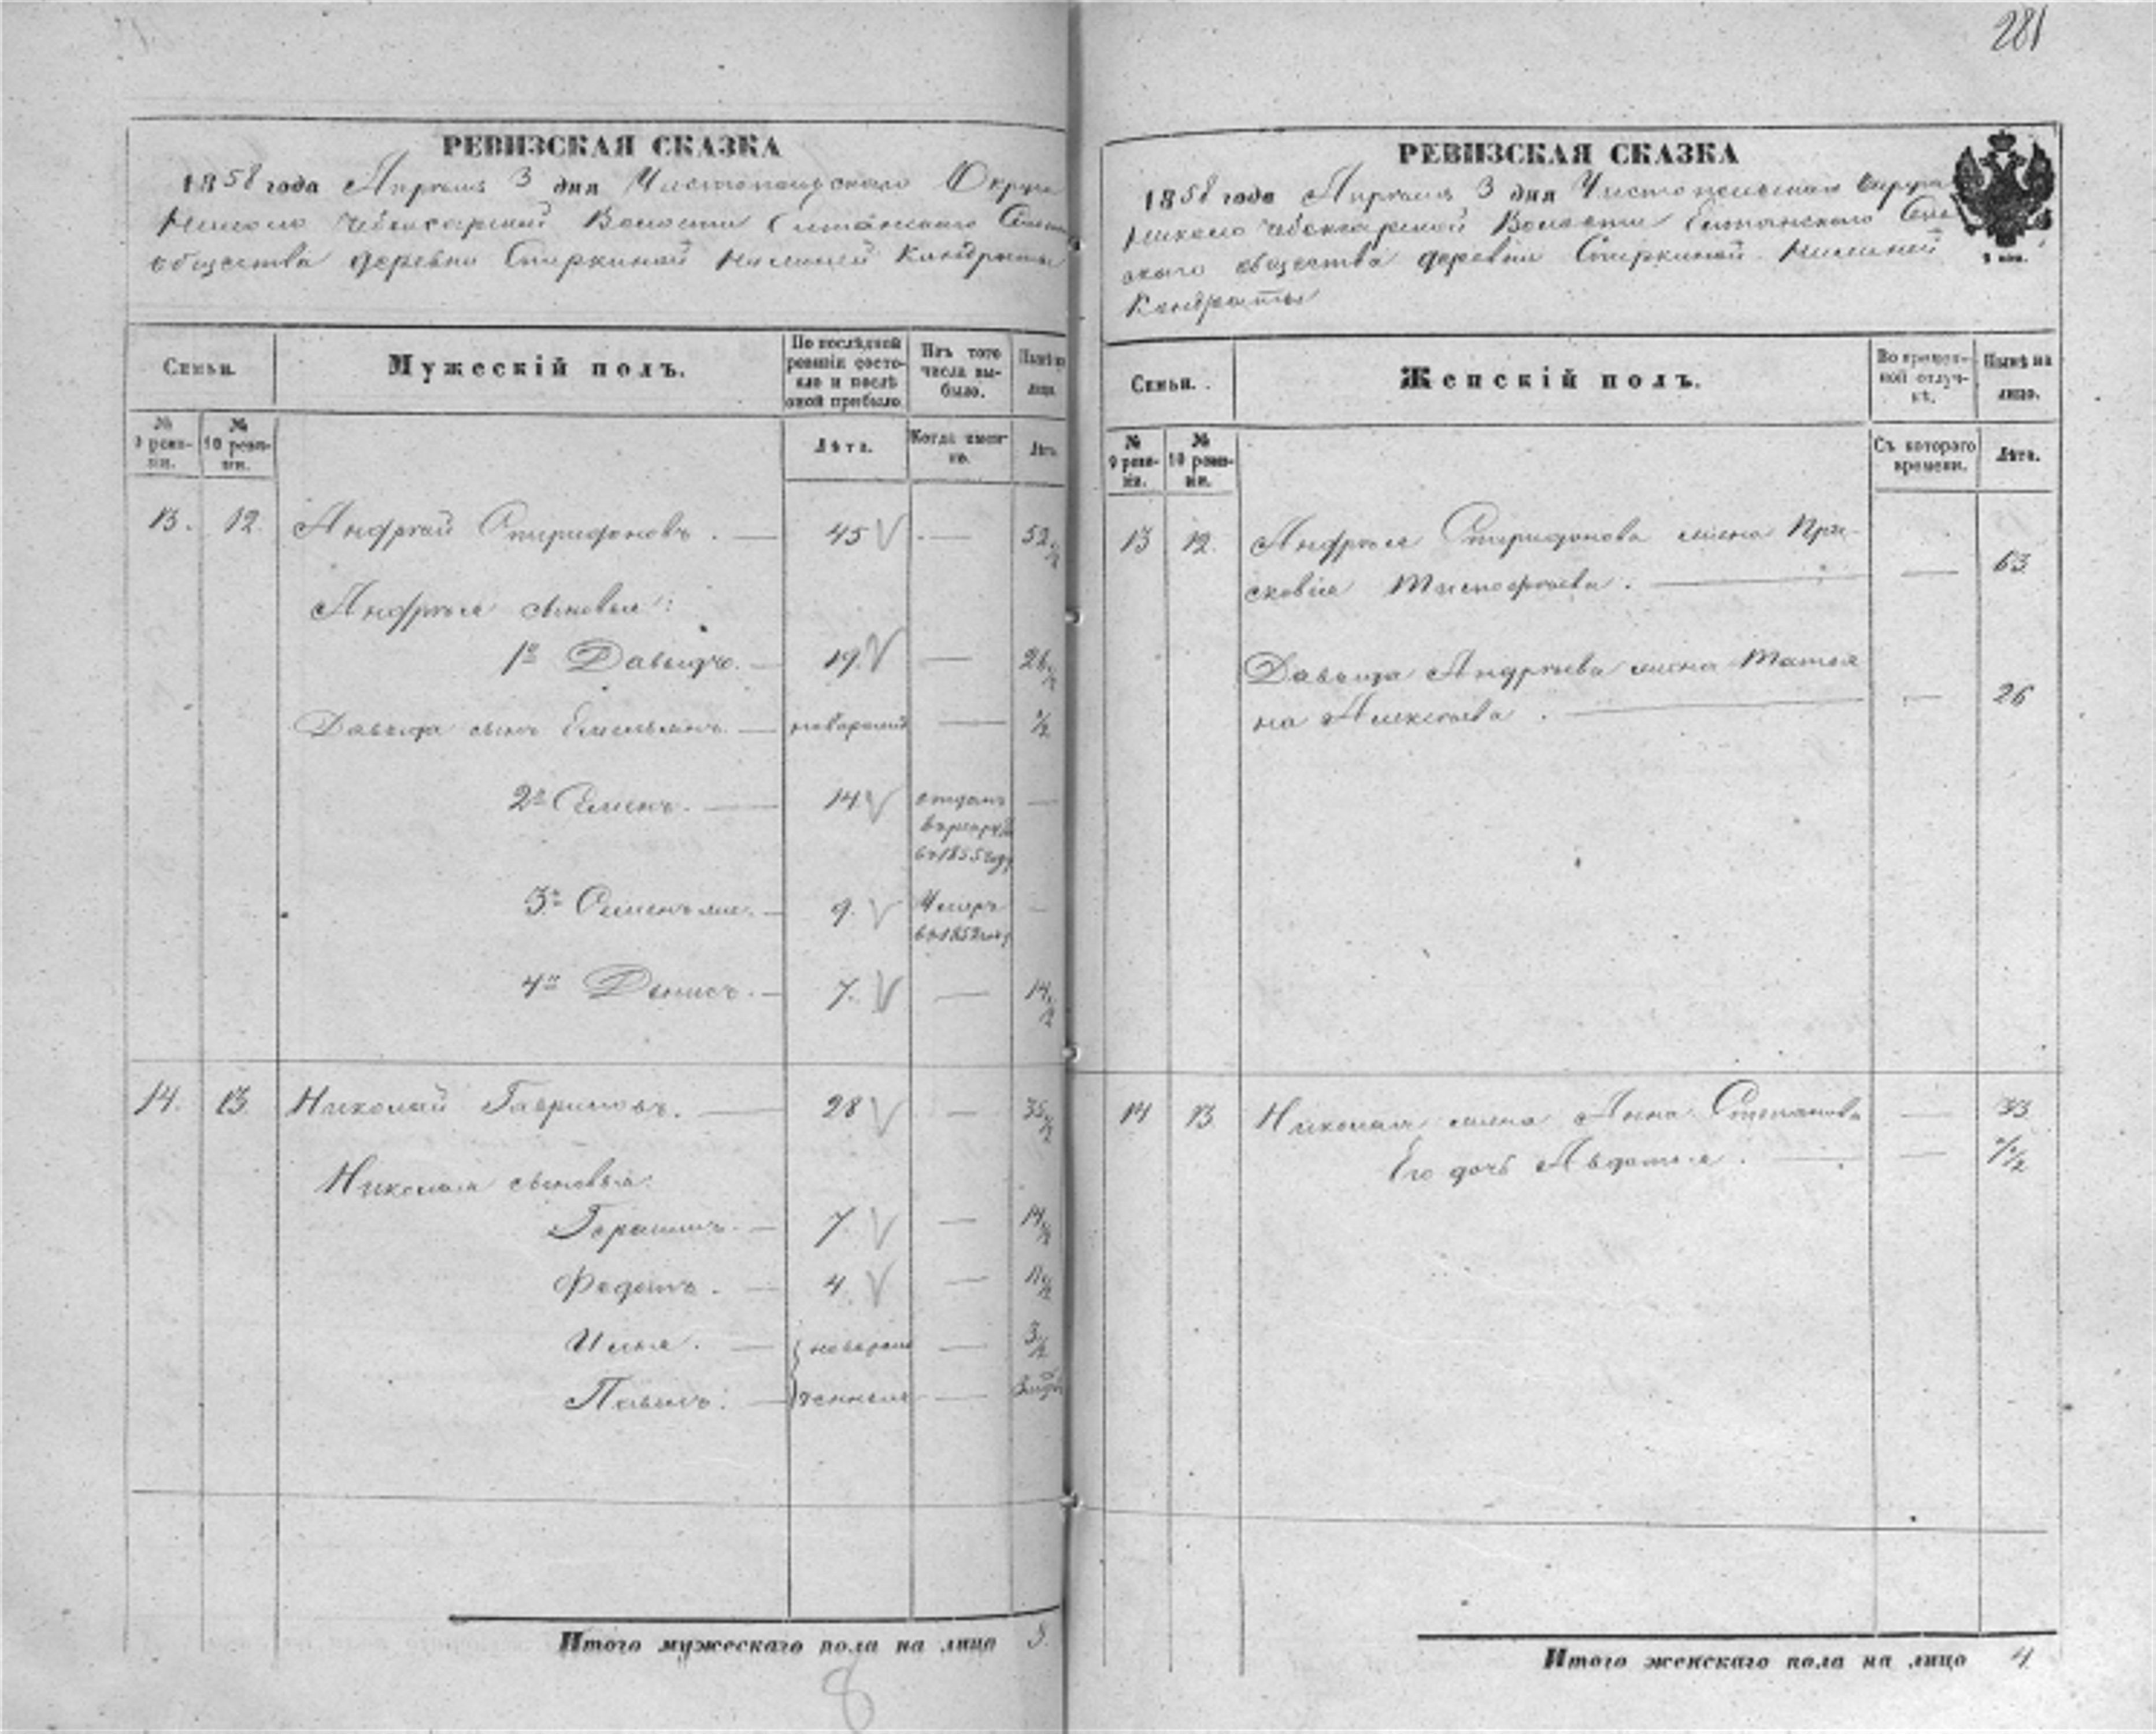 281
РЕВИЗСКАЯ СКАЗКА
1858 года Апреля 3 дня Чистопольскаго Округа
Волости
общества деревни Спиркиной Кондраты
Семьи.
Мужескій полъ.
По послѣдней ревизіи состояло и послѣ оной прибыло.
Изъ того числа выбыло.
Нынѣ на лицо.
№ 9 ревизіи.
№ 10 ревизіи.
Лѣта.
Когда именно.
Лѣта.
13. 12. Андрей Спиридоновъ. 45 52 1/2
Андрея сыновья:
1й Давыдъ. 19. 26 1/2
Давыда сынъ Емельянъ. новорожд 1/2
2й Семенъ. 14. отданъ
в рекруты
в 1855 году
3й 9. Умеръ
в 1852 году
4й Денисъ. 7. 14 1/2
14. 13. Николай Гавриловъ. 28 35 1/2
Николая сыновья:
Герасимъ. 7. 14 1/2
Федотъ. 4. 11 1/2
Илья. новорож 3 1/2
Павелъ. денные
Итого мужескаго пола на лицо 8.
8
РЕВИЗСКАЯ СКАЗКА
1858 года Апреля 3 дня Чистопольскаго Округа
Волости
скаго общества деревни Спиркиной
Кондраты
Семьи.
Женскій полъ.
Во временной отлучкѣ.
Нынѣ на лицо.
№ 9 ревизіи.
№ 10 ревизіи.
Съ котораго времени.
Лѣта.
13 12. Андрея Спиридонова жена Пра-
сковья Тимофеева. 53
Давыда Андреева жена Татья
на Алексеева. 26
14 13. Николая жена Анна Степанова 33
Его дочь Авдотья. 7 1/2
Итого женскаго пола на лицо 4